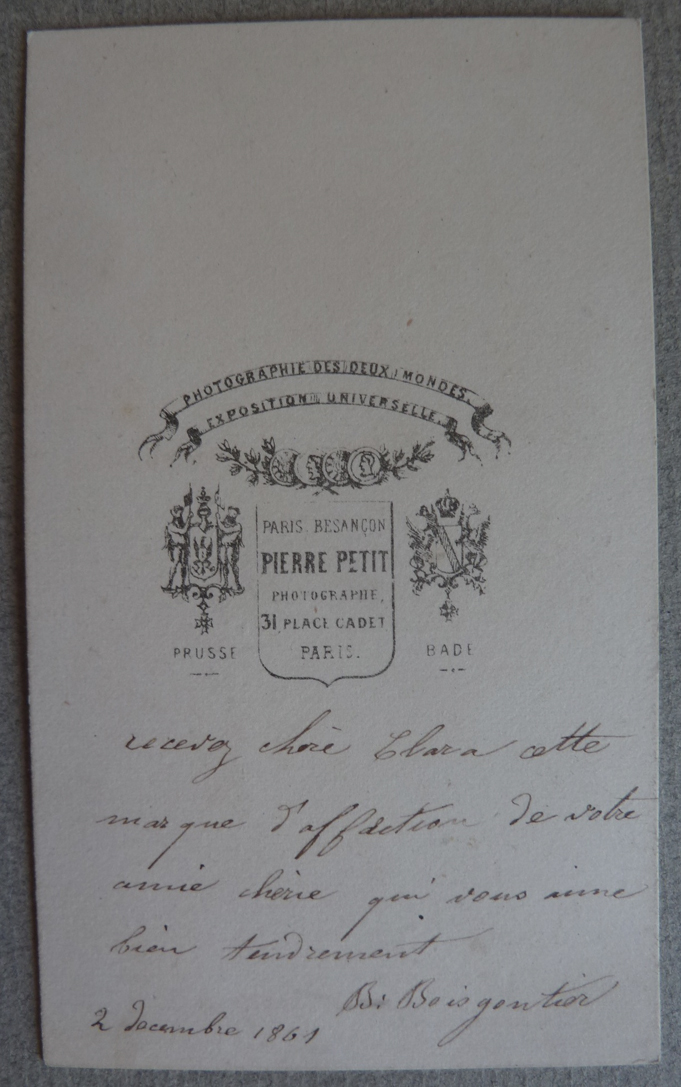 PHOTOGRAPHIE DES DEUX MONDES.
EXPOSITION UNIVERSELLE.
PARIS. BESANÇON
PIERRE PETIT
PHOTOGRAPHE,
31, PLACE CADET
PARIS.
PRUSSE
BADE
recevez chère Clara cette
marque d'affection de votre
amie chérie qui vous aime
bien tendrement
B. Boisgontier
2 decembre 1861